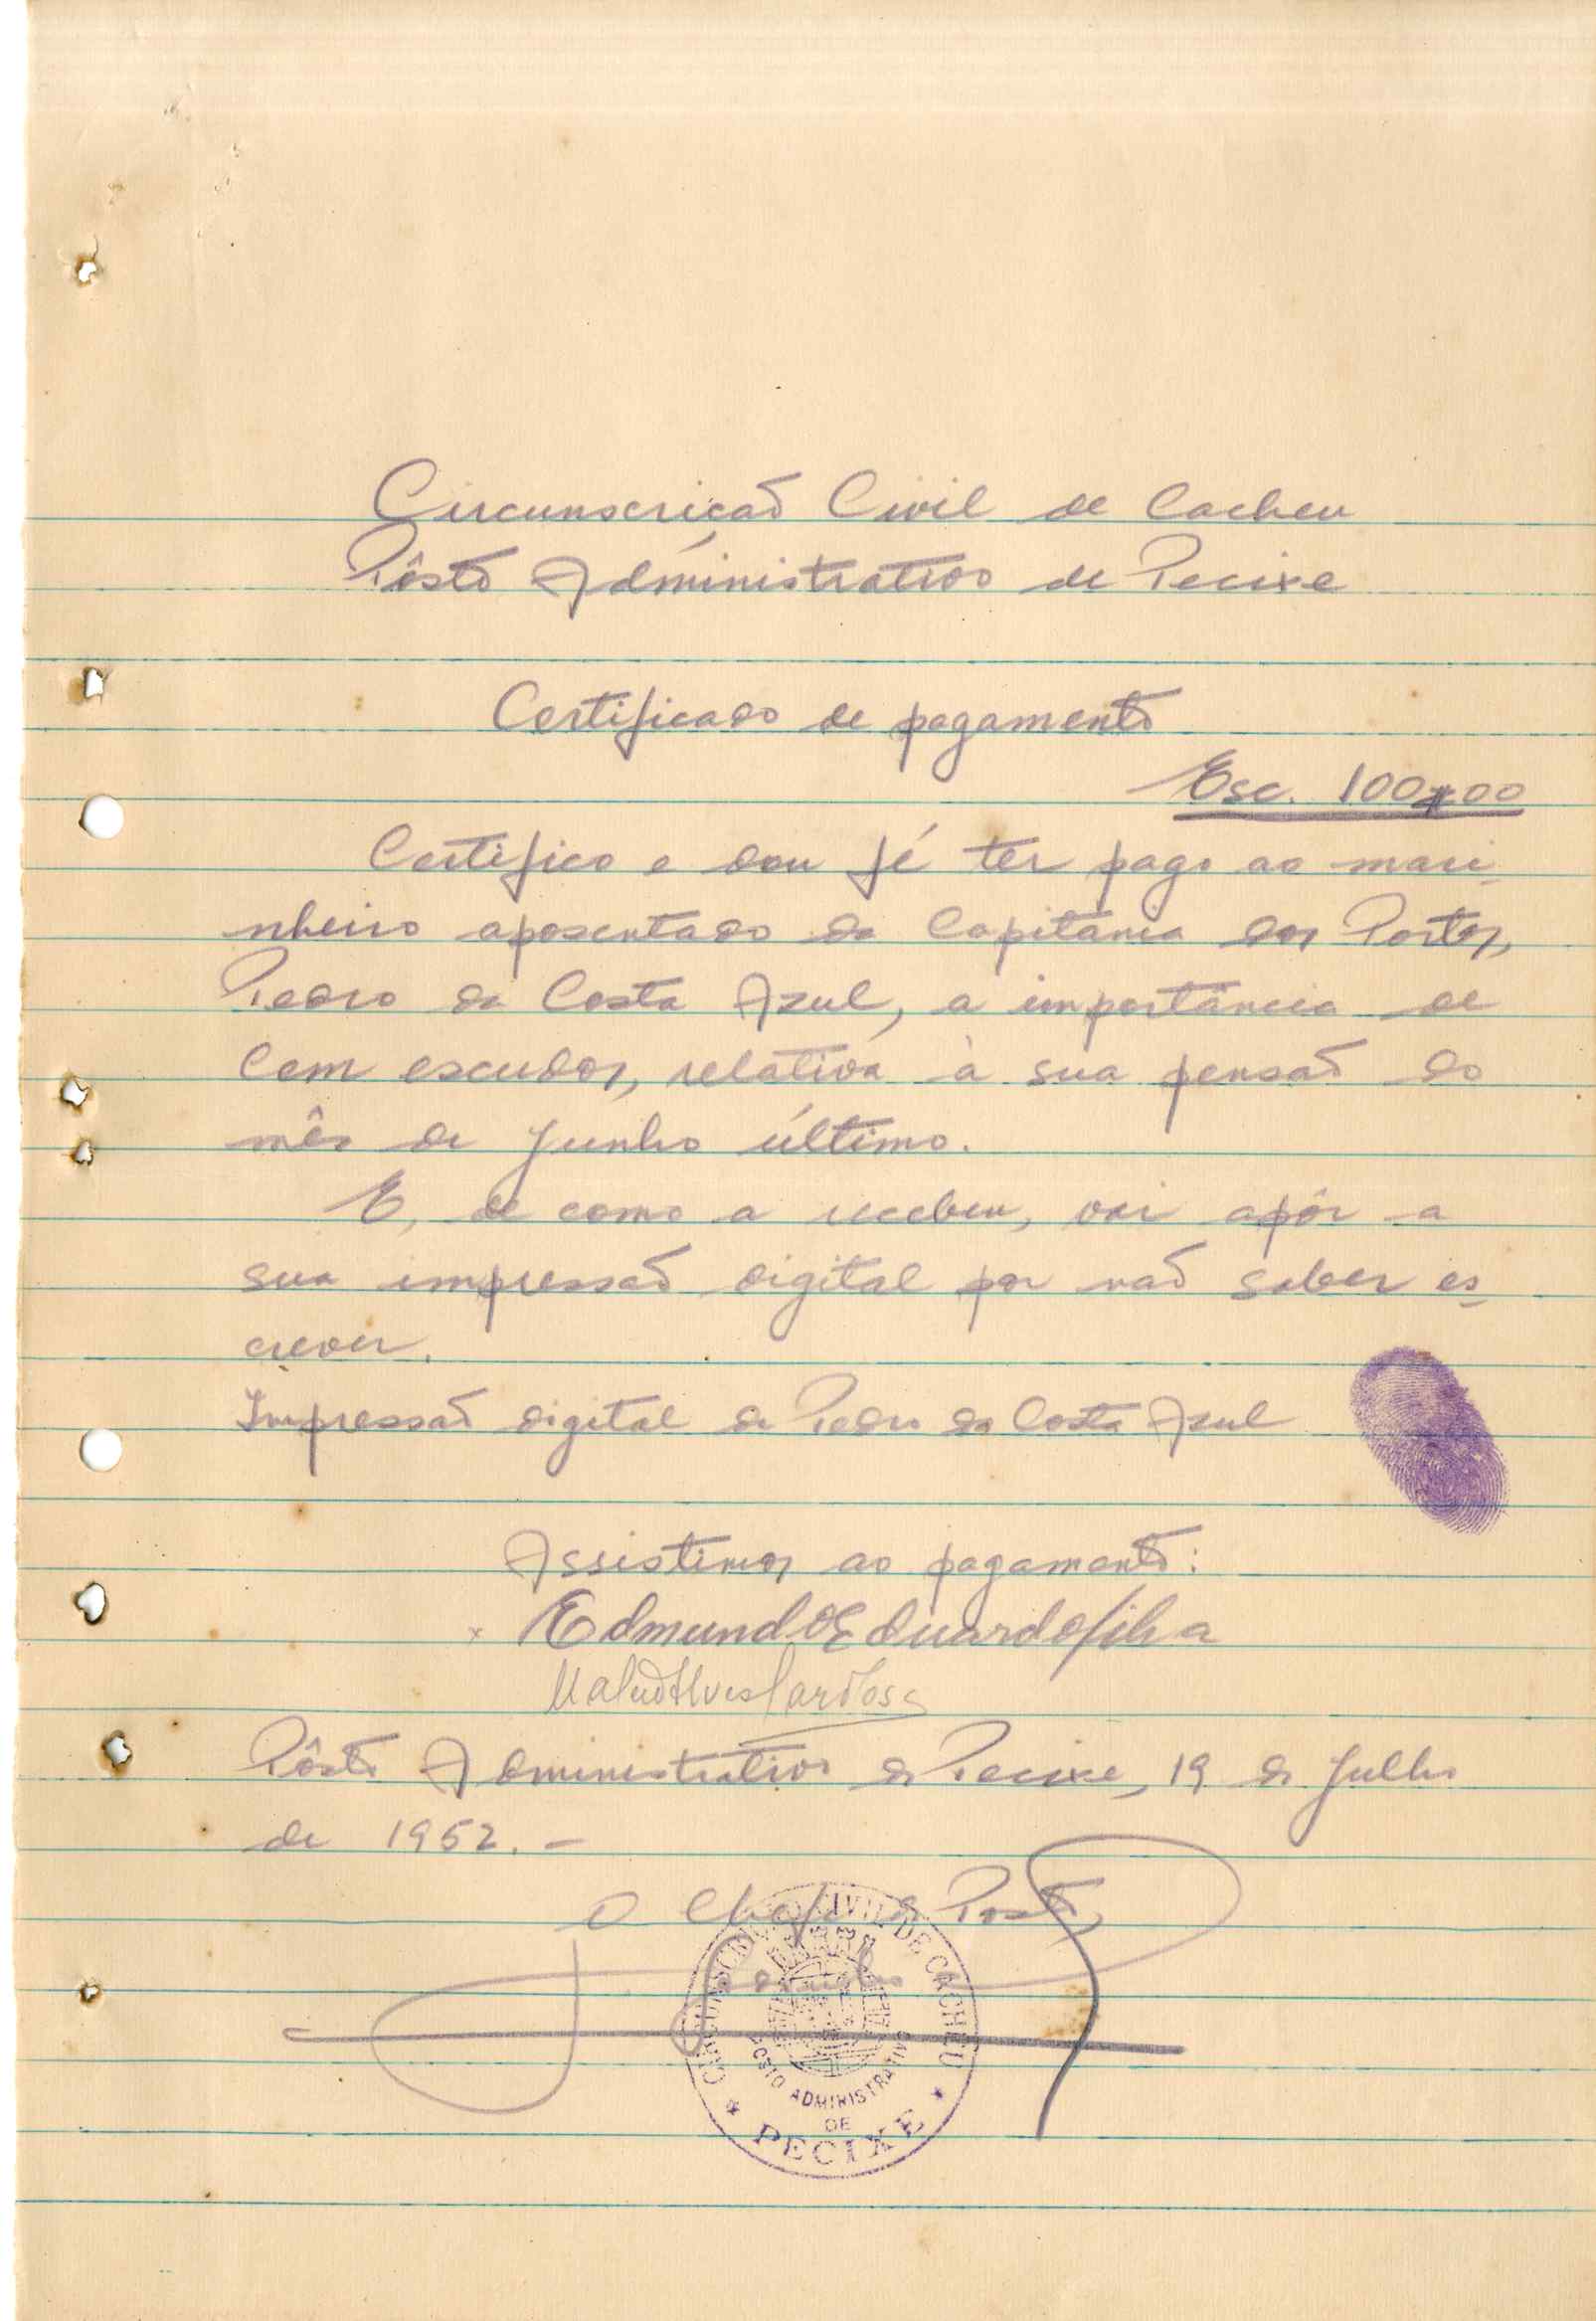 Circunscrição Civil de Cacheu
Pôsto Administrativo de Pecixe
Certificado de pagamento
Esc. 100$00
Certifico e dou fé ter pago ao mari-
nheiro aposentado da Capitania dos Portos,
Pedro da Costa Azul, a importância de
Cem escudos, relativa à sua pensão do
mês de Junho último.
E, de como a recebeu, vai apôr a
sua impressão digital por não saber es-
crever.
Impressão digital de Pedro da Costa Azul
Assistimos ao pagamento:
x Edmundo Eduardo Silva
Alves Cardoso
Pôsto Administrativo de Pecixe, 19 de Julho
de 1952. -
O Chefe de Posto,
CIRCUNSCRIÇÃO CIVIL DE CACHEU
POSTO ADMINISTRATIVO
DE
* PECIXE *